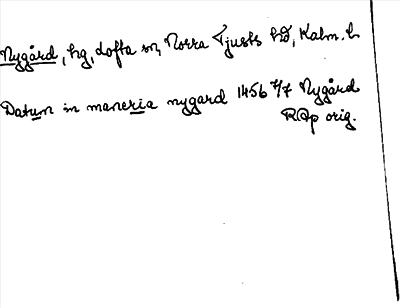 Nygård, hg, Lofta sn, Norra Tjusts hd, Kalm. l.
Datum in maneria nygard 1456 7/7 Nygård
RAp orig.